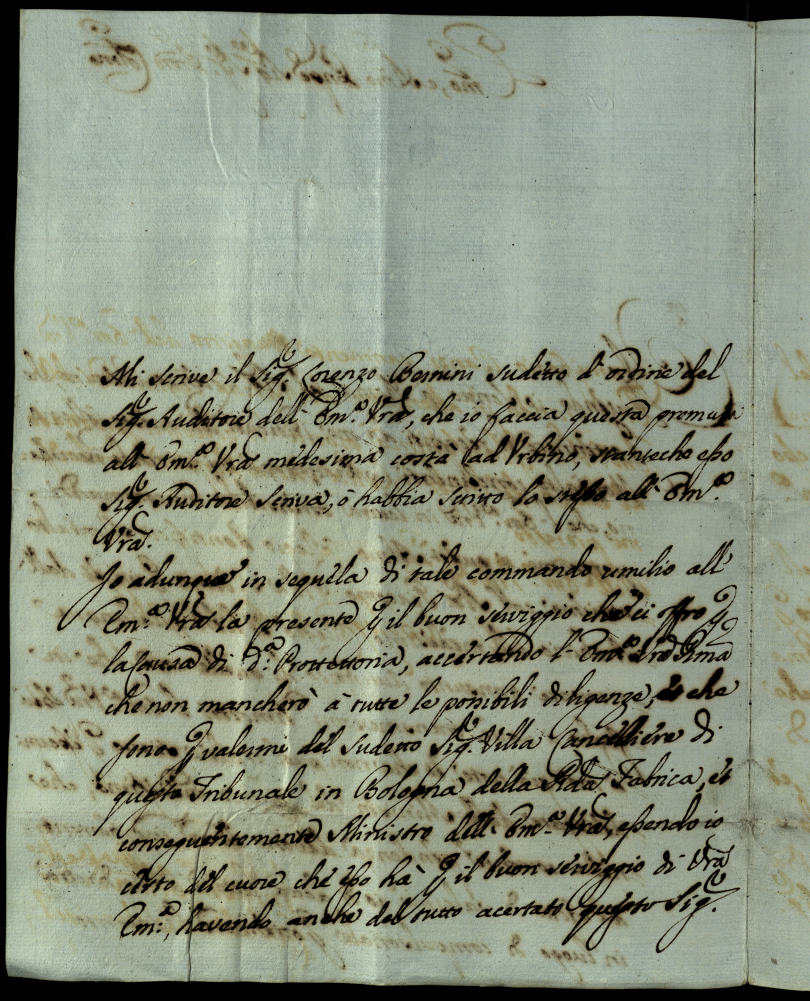 Mi scrive il Sig.r Lorenzo Bernini sudetto d'ordine del
Sig.r Auditore dell'Em.a Vra, che io faccia questa premura
all'Em.a Vra medesima costà ad Urbino, stanteche esso
Sig.r Auditore scriva, ò habbia scritto lo stesso all'Em.a
Vra.
Io adunque in sequela di tale commando umilio all'
Em.a Vra la presente p il buon serviggio che ci offro p
la Causa di d.a Prottettoria, accertando l'Em.a Vra
che non mancherò à tutte le possibili diligenze, che
sono p valermi del sudetto Sig.r Villa Cancelliere di
questo Tribunale in Bologna della Rda Fabrica, et
conseguentemente Ministro dell'Em.a Vra, essendo io
certo del cuore che esso hà p il buon serviggio di Vra
Em.a, havendo anche del tutto acertato questo Sig.r